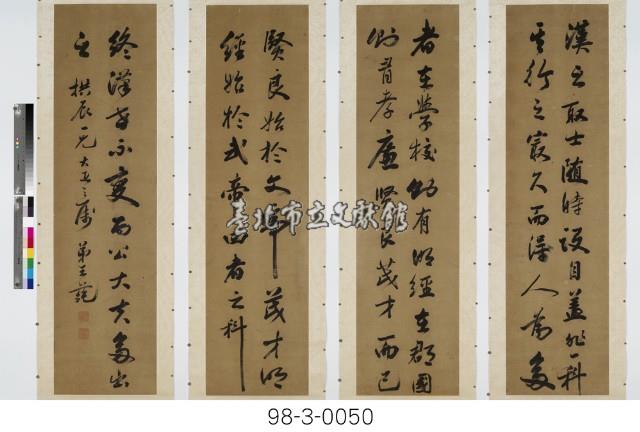 漢之取士隨時設目蓋非一科
其行之最久而得人為多
者在學校則有明經在郡國
則有孝廉賢良茂才而已
賢良始於文帝茂才明
經始於武帝四者之科
終漢世不變而公大夫多出
拱辰一兄大人之屬
弟王
臺北市立文獻館
98-3-0050